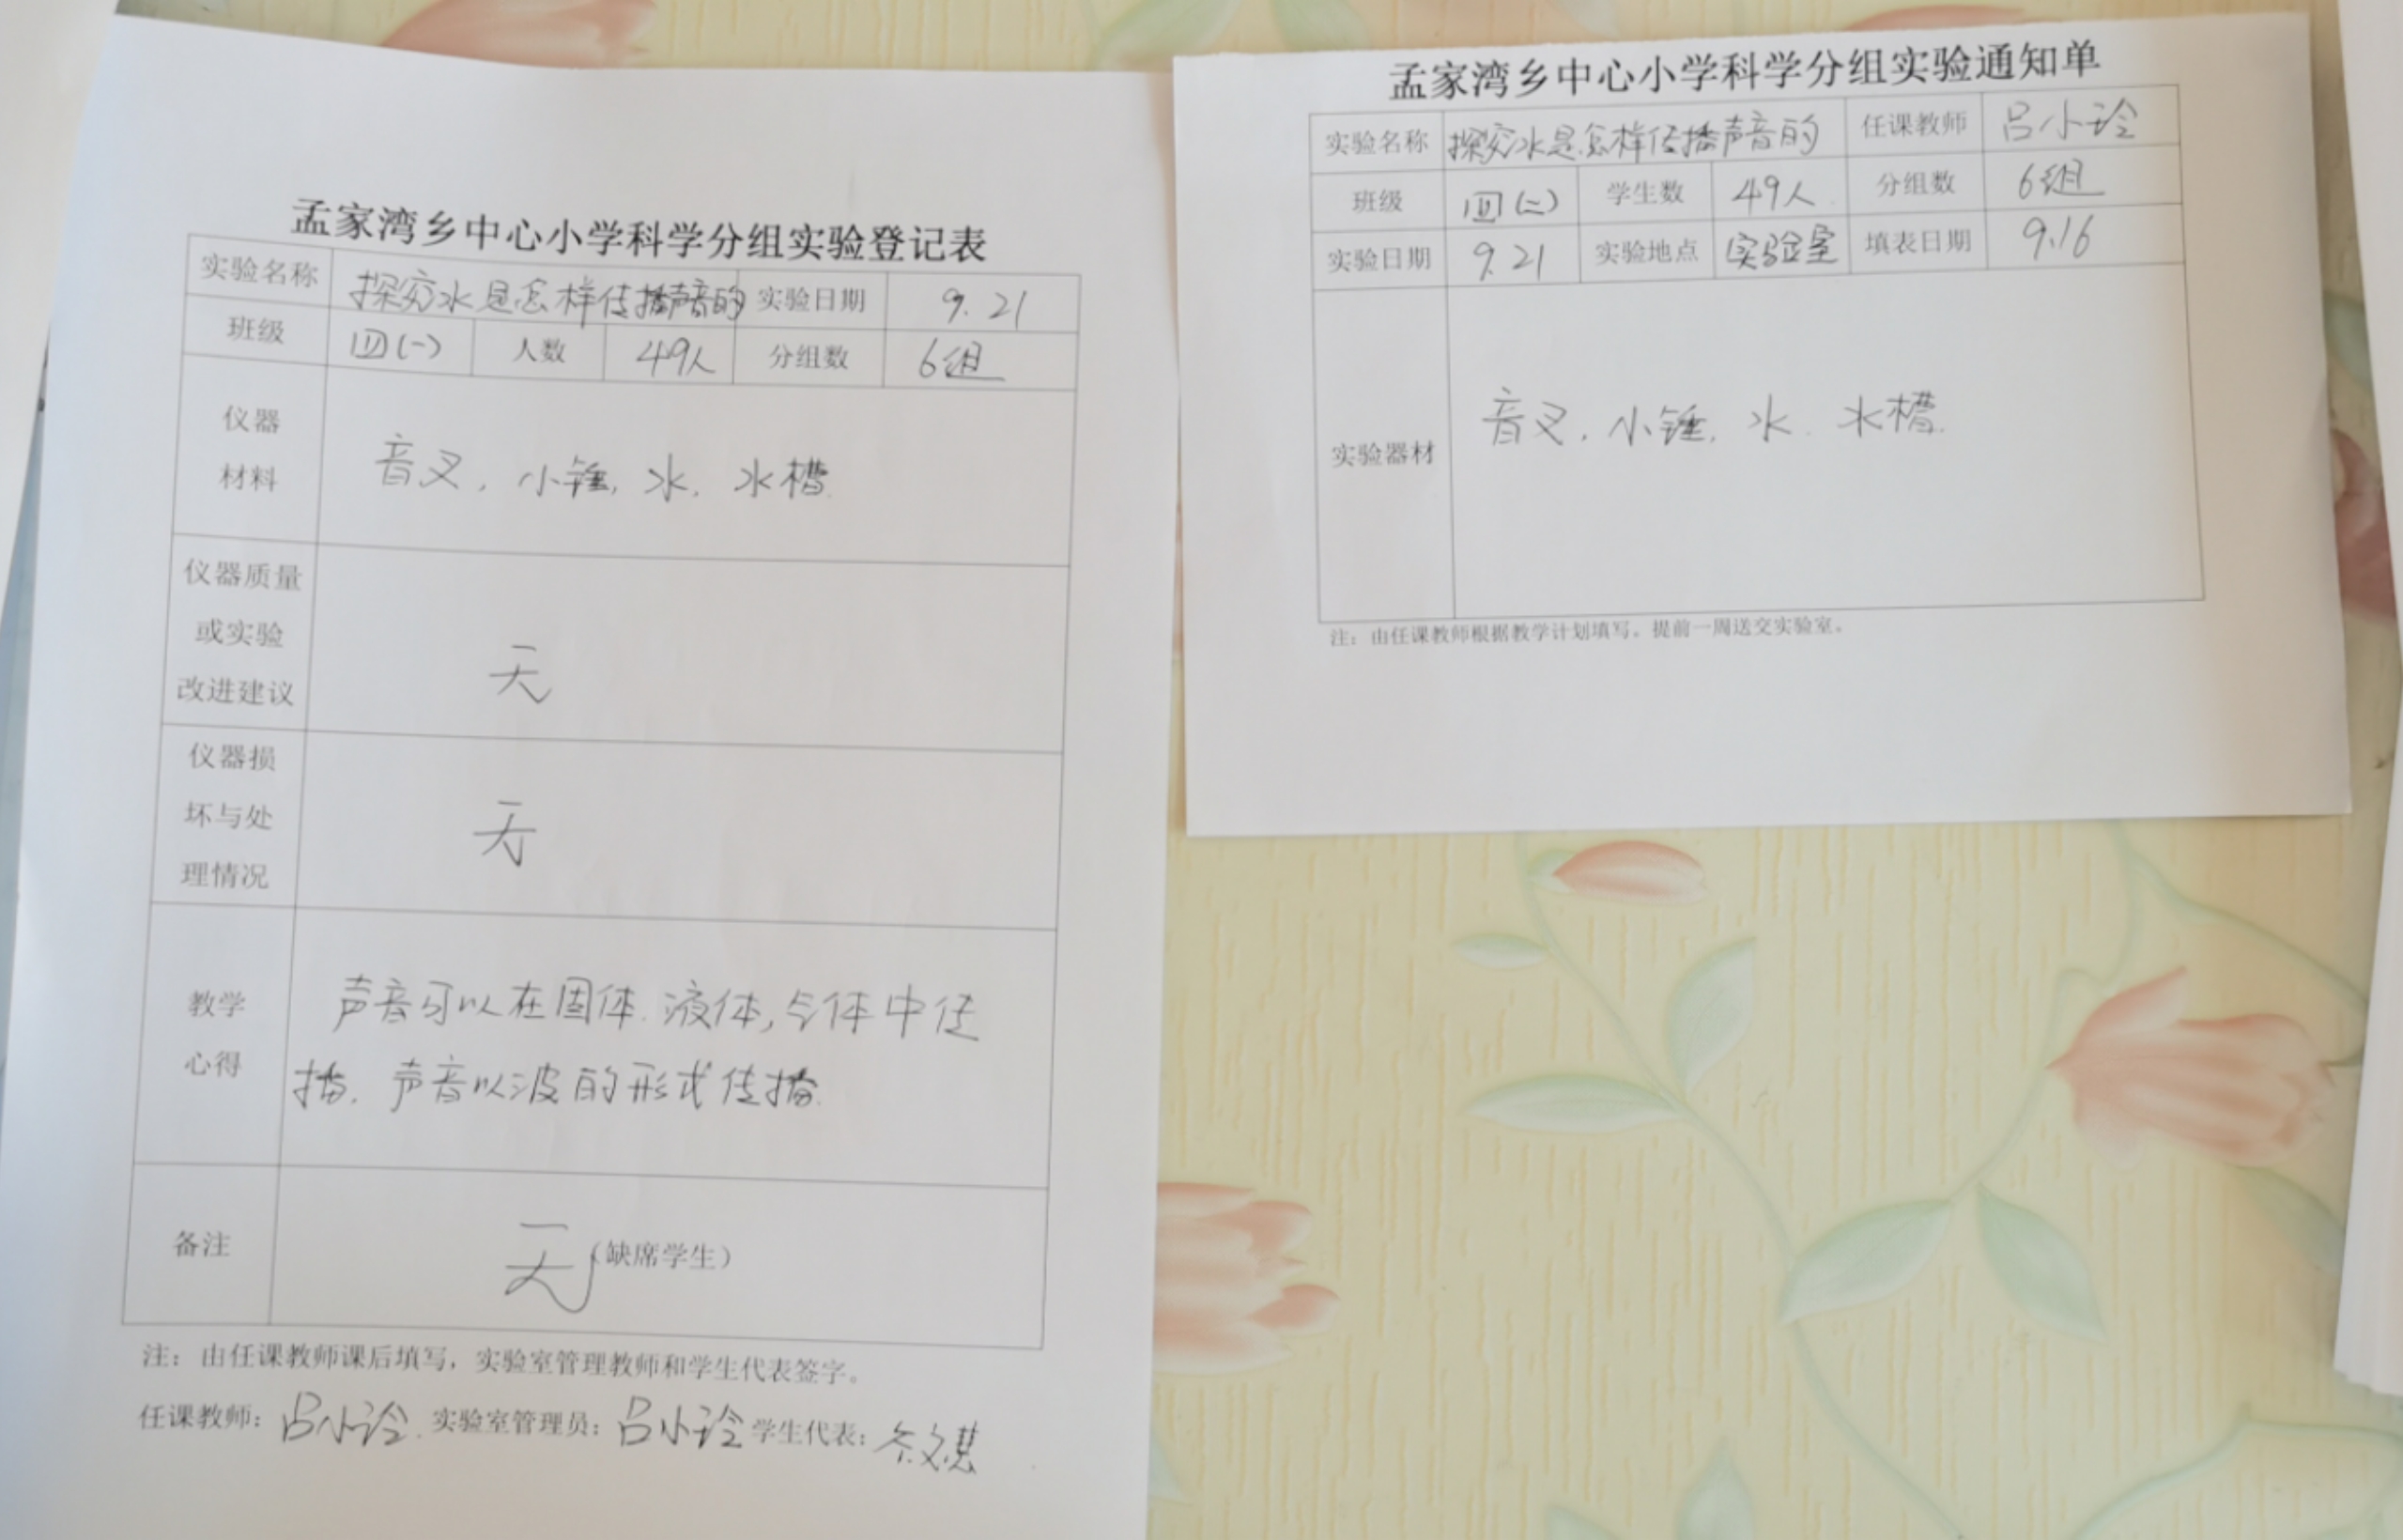 孟家湾乡中心小学科学分组实验登记表
实验名称 探究水是怎样传播声音的 实验日期 9.21
班级 四(一) 人数 49人 分组数 6组
仪器
材料
音叉，小锤，水，水槽.
仪器质量
或实验
改进建议
无
仪器损
坏与处
理情况
无
教学
心得
声音可以在固体.液体,气体中传
播. 声音以波的形式传播.
备注 无 (缺席学生)
注：由任课教师课后填写，实验室管理教师和学生代表签字。
任课教师：吕小玲 实验室管理员：吕小玲 学生代表：
孟家湾乡中心小学科学分组实验通知单
实验名称 探究水是怎样传播声音的 任课教师 吕小玲
班级 四(二) 学生数 49人 分组数 6组
实验日期 9.21 实验地点 实验室 填表日期 9.16
实验器材 音叉，小锤，水.水槽.
注：由任课教师根据教学计划填写。提前一周送交实验室。